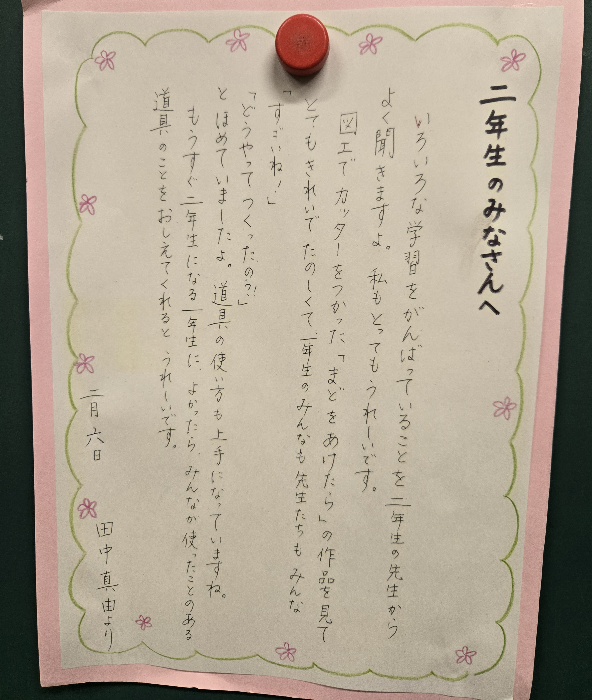 二年生のみなさんへ
いろいろな学習をがんばっていることを二年生の先生から
よく聞きますよ。私もとってもうれしいです。
図工でカッターをつかった「まどをあけたら」の作品を見て
とてもきれいでたのしくて、一年生のみんなも先生たちもみんな
「すごいね！」
「どうやってつくったの？！」
とほめていましたよ。道具の使い方も上手になっていますね。
もうすぐ二年生になる一年生に、よかったら、みんなが使ったことのある
道具のことをおしえてくれるとうれしいです。
二月六日
田中真由より